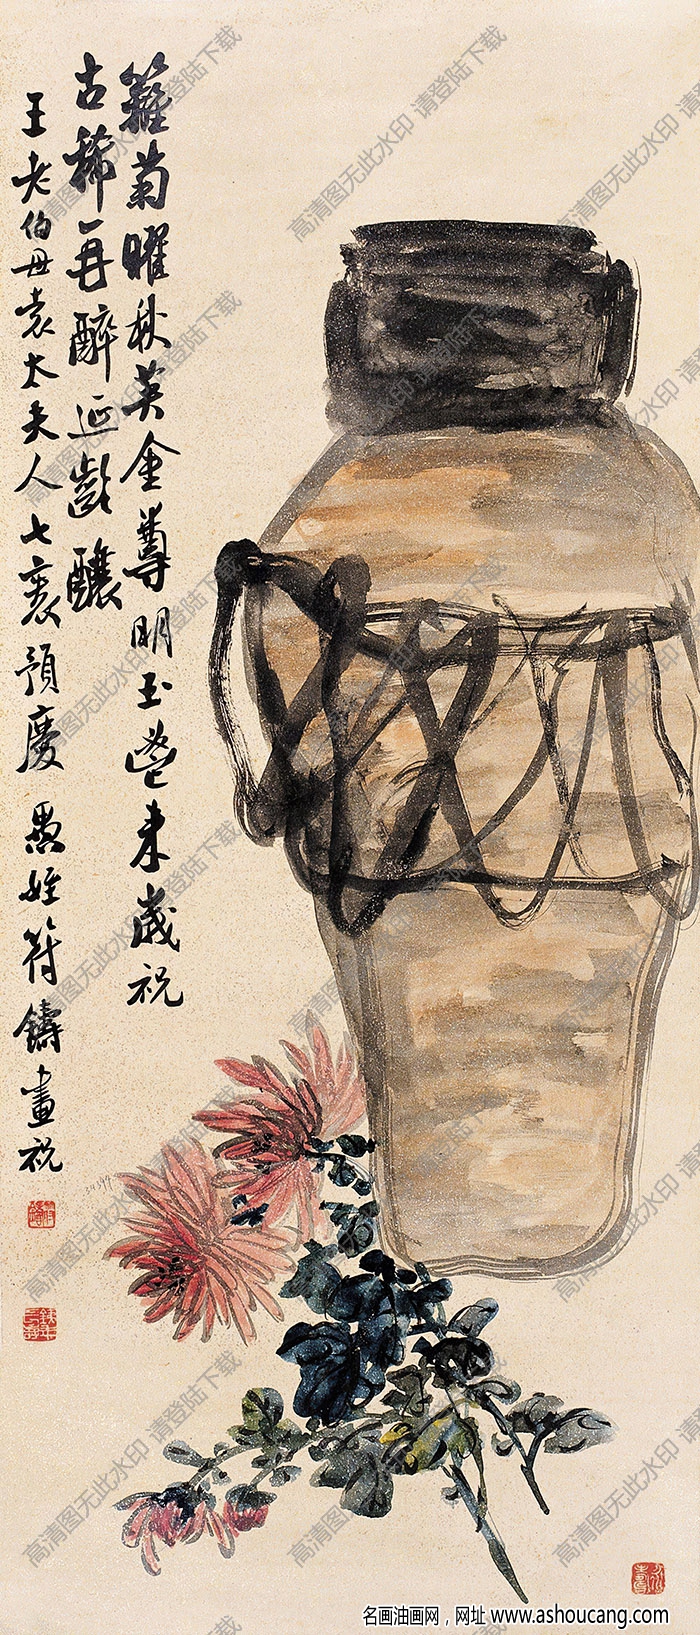 籬菊曜秋英金尊明玉瑩来歲祝
古稀再醉延齡釀
王老伯母袁太夫人七袠預慶 愚姪符鑄畫祝
高清图无此水印 请登陆下载
名画油画网，网址 www.ashoucang.com